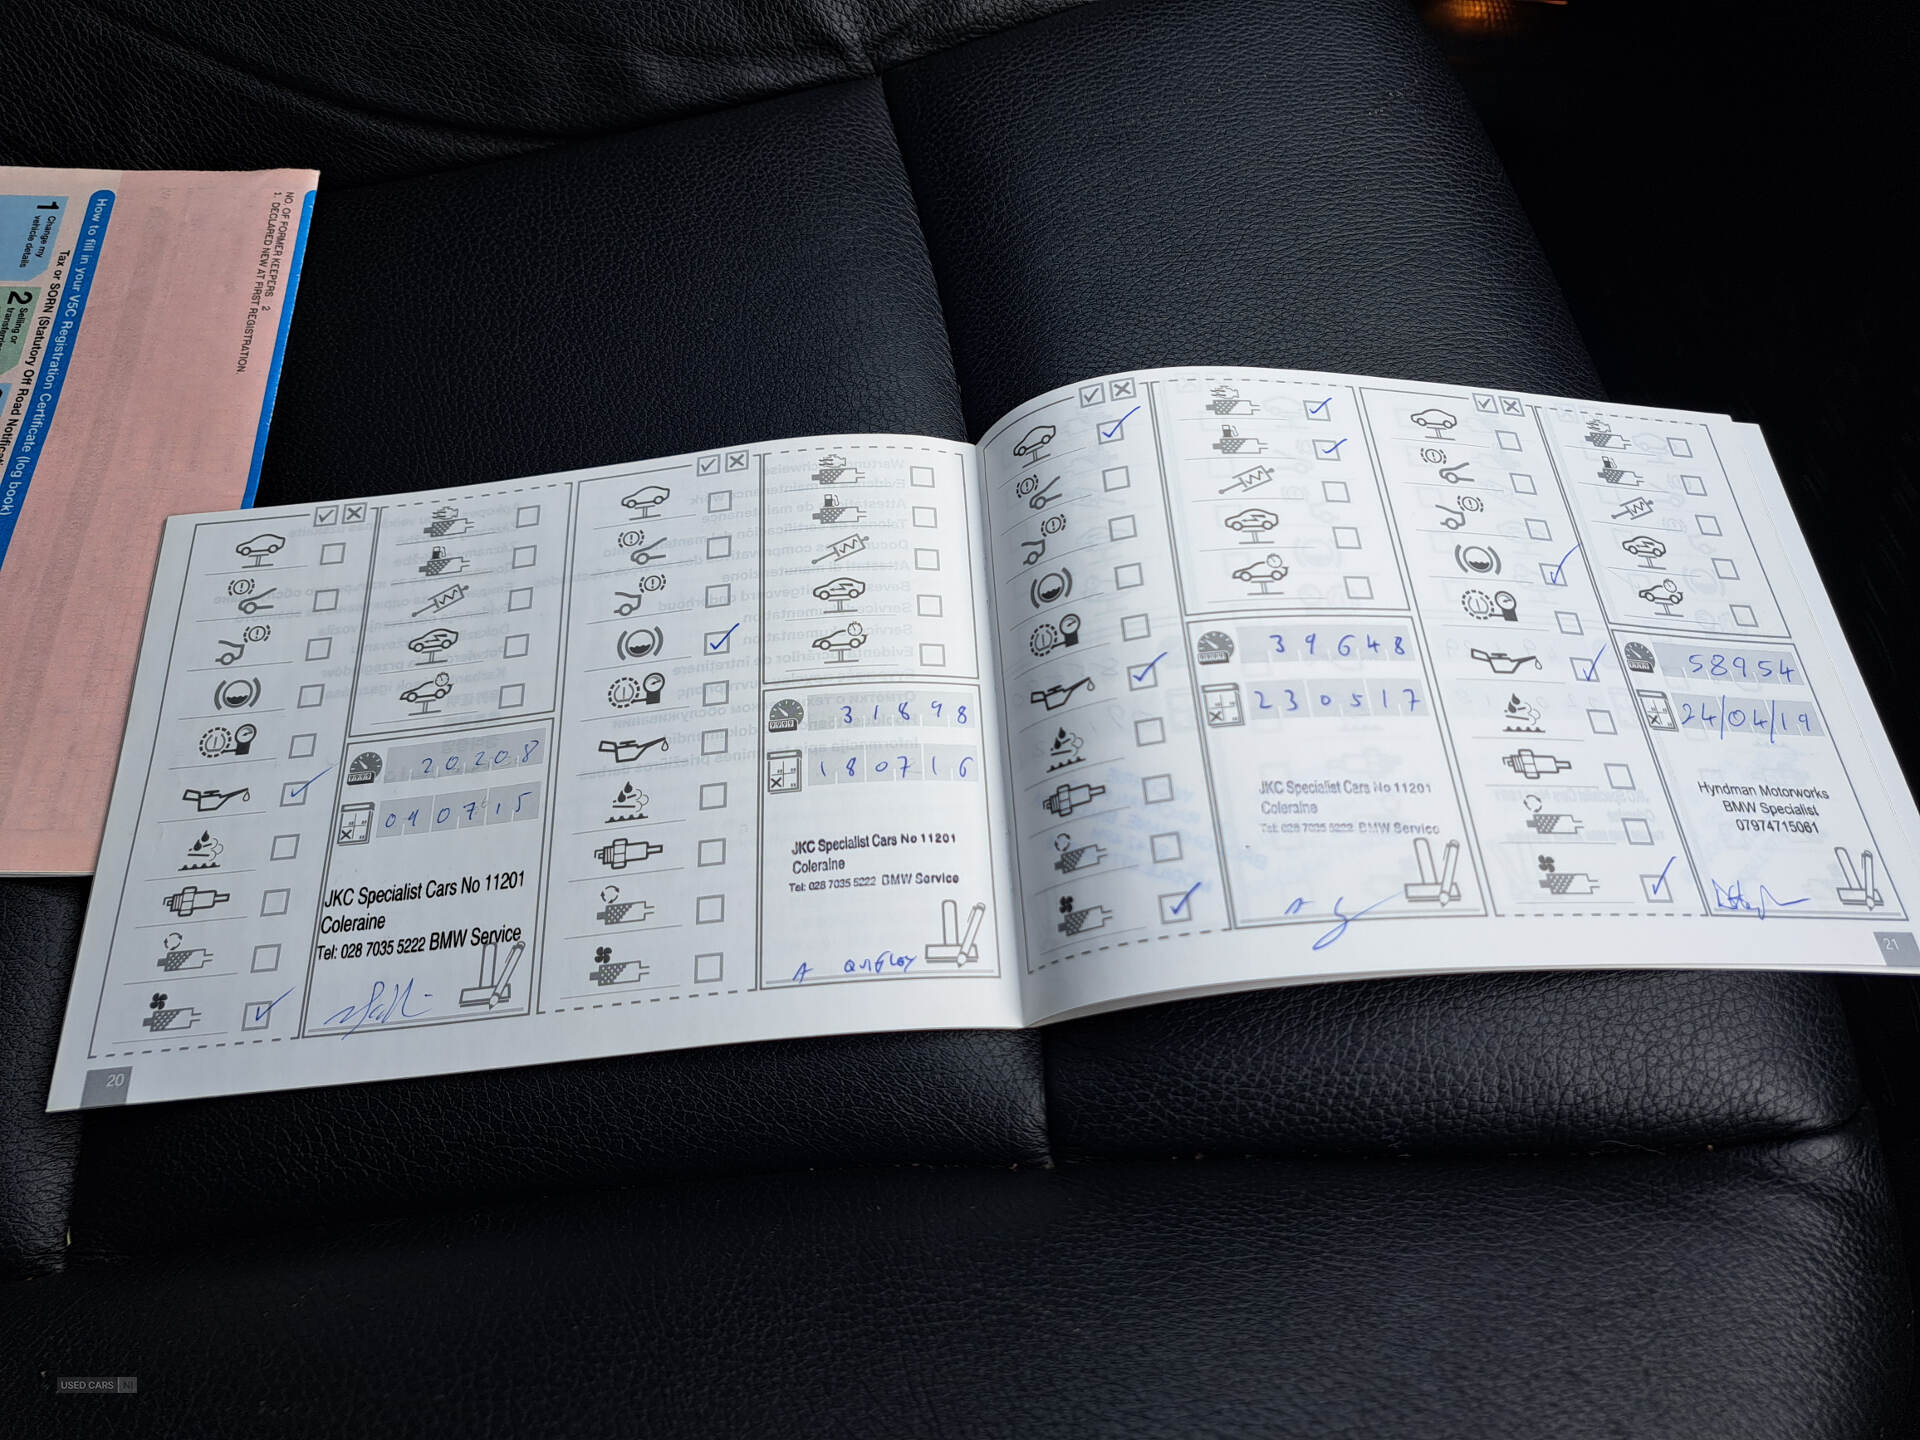 NO. OF FORMER KEEPERS 2
1. DECLARED NEW AT FIRST REGISTRATION.
How to fill in your V5C Registration Certificate (log book)
Tax or SORN (Statutory Off Road Notificati
1 Change my
vehicle details
2 Selling or
20208
090715
JKC Specialist Cars No 11201
Coleraine
Tel: 028 7035 5222 BMW Service
20
31898
180716
JKC Specialist Cars No 11201
Coleraine
Tel: 028 7035 5222 BMW Service
A QUIGLEY
39648
230517
JKC Specialist Cars No 11201
Coleraine
Tel: 028 7035 5222 BMW Service
58954
24/04/19
Hyndman Motorworks
BMW Specialist
07974715061
21
USED CARS NI